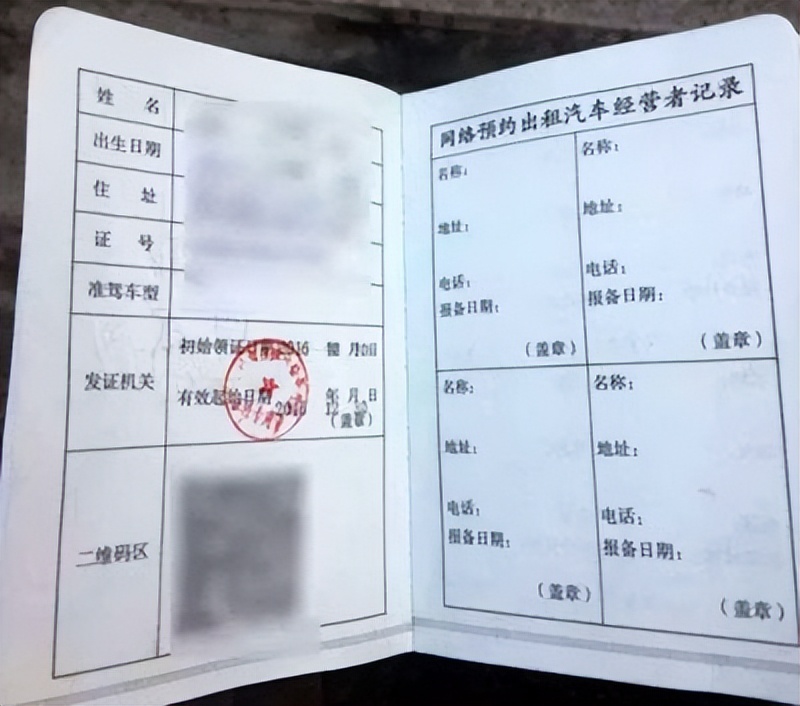 姓 名
出生日期
住 址
证 号
准驾车型
发证机关
初始领证日期 2016
有效起始日期 2016 年 月 日
(盖章)
二维码区
网络预约出租汽车经营者记录
名称:
地址:
电话:
报备日期:
(盖章)
名称:
地址:
电话:
报备日期:
(盖章)
名称:
地址:
电话:
报备日期:
(盖章)
名称:
地址:
电话:
报备日期:
(盖章)